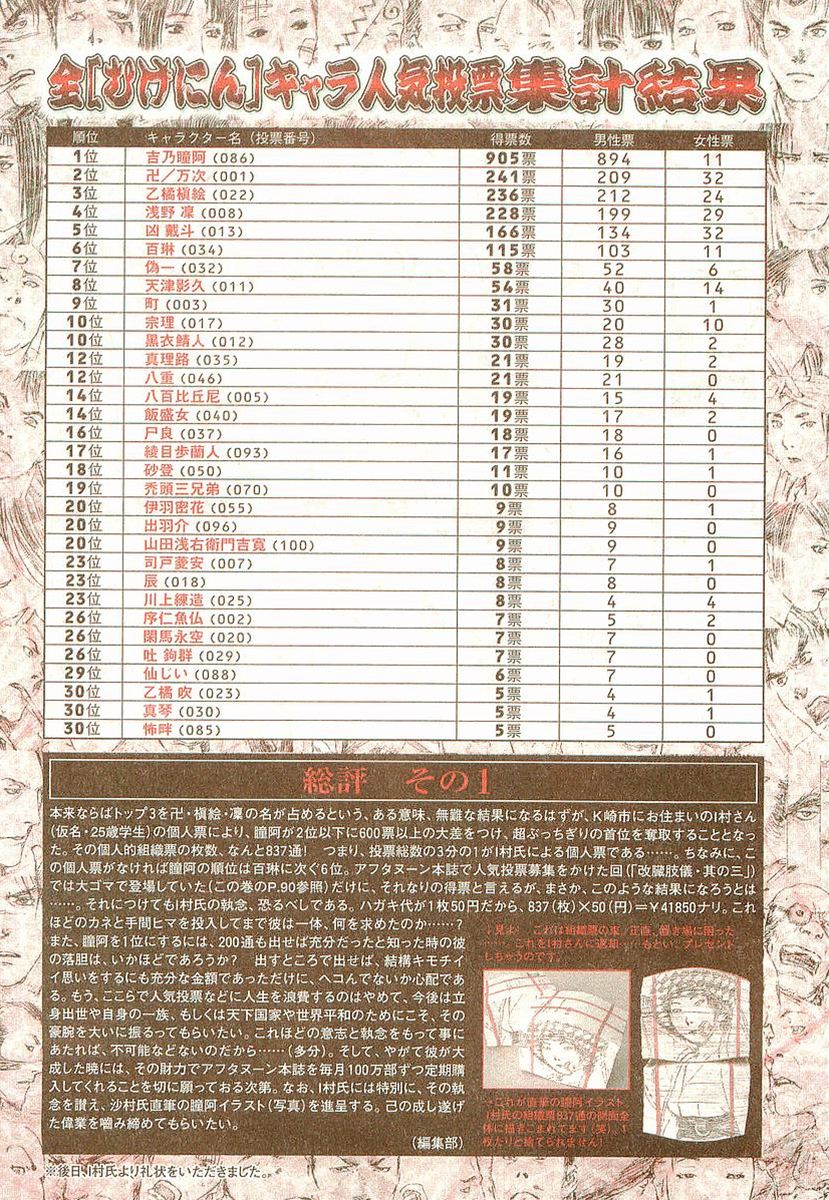 全[むげにん]キャラ人気投票集計結果
順位 キャラクター名（投票番号） 得票数 男性票 女性票
1位 吉乃瞳阿（086） 905票 894 11
2位 卍／万次（001） 241票 209 32
3位 乙橘槇絵（022） 236票 212 24
4位 浅野 凜（008） 228票 199 29
5位 凶 戴斗（013） 166票 134 32
6位 百琳（034） 115票 103 11
7位 偽一（032） 58票 52 6
8位 天津影久（011） 54票 40 14
9位 町（003） 31票 30 1
10位 宗理（017） 30票 20 10
10位 黒衣鯖人（012） 30票 28 2
12位 真理路（035） 21票 19 2
12位 八重（046） 21票 21 0
14位 八百比丘尼（005） 19票 15 4
14位 飯盛女（040） 19票 17 2
16位 尸良（037） 18票 18 0
17位 綾目歩蘭人（093） 17票 16 1
18位 砂登（050） 11票 10 1
19位 禿頭三兄弟（070） 10票 10 0
20位 伊羽密花（055） 9票 8 1
20位 出羽介（096） 9票 9 0
20位 山田浅右衛門吉寛（100） 9票 9 0
23位 司戸菱安（007） 8票 7 1
23位 辰（018） 8票 8 0
23位 川上練造（025） 8票 4 4
26位 序仁魚仏（002） 7票 5 2
26位 閑馬永空（020） 7票 7 0
26位 吐 鉤群（029） 7票 7 0
29位 仙じい（088） 6票 7 0
30位 乙橘 吹（023） 5票 4 1
30位 真琴（030） 5票 4 1
30位 怖畔（085） 5票 5 0
総評 その1
本来ならばトップ3を卍・槇絵・凜の名が占めるという、ある意味、無難な結果になるはずが、K崎市にお住まいのI村さん
（仮名・25歳学生）の個人票により、瞳阿が2位以下に600票以上の大差をつけ、超ぶっちぎりの首位を奪取することとなっ
た。その個人的組織票の枚数、なんと837通！ つまり、投票総数の3分の1がI村氏による個人票である……。ちなみに、こ
の個人票がなければ瞳阿の順位は百琳に次ぐ6位。アフタヌーン本誌で人気投票募集をかけた回（「改臓肢儀・其の三」）
では大ゴマで登場していた（この巻のP.90参照）だけに、それなりの得票と言えるが、まさか、このような結果になろうとは
……。それにつけてもI村氏の執念、恐るべしである。ハガキ代が1枚50円だから、837（枚）×50（円）＝￥41850ナリ。これ
ほどのカネと手間ヒマを投入してまで彼は一体、何を求めたのか……？
また、瞳阿を1位にするには、200通も出せば充分だったと知った時の彼
の落胆は、いかほどであろうか？ 出すところで出せば、結構キモチイ
イ思いをするにも充分な金額であっただけに、ヘコんでないか心配であ
る。もう、ここらで人気投票などに人生を浪費するのはやめて、今後は立
身出世や自身の一族、もしくは天下国家や世界平和のためにこそ、その
豪腕を大いに振るってもらいたい。これほどの意志と執念をもって事に
あたれば、不可能などないのだから……（多分）。そして、やがて彼が大
成した暁には、その財力でアフタヌーン本誌を毎月100万部ずつ定期購
入してくれることを切に願っておる次第。なお、I村氏には特別に、その執
念を讃え、沙村氏直筆の瞳阿イラスト（写真）を進呈する。己の成し遂げ
た偉業を噛み締めてもらいたい。
（編集部）
↓見よ！ これは組織票の束！正直、置き場に困った
……。これをI村さんに返却……もとい、プレゼント
しちゃうのです。
→これが直筆の瞳阿イラスト
I村氏の組織票837通の側面全
体に描きこまれてます（笑）。1
枚たりと捨てられません！
※後日、I村氏より礼状をいただきました。